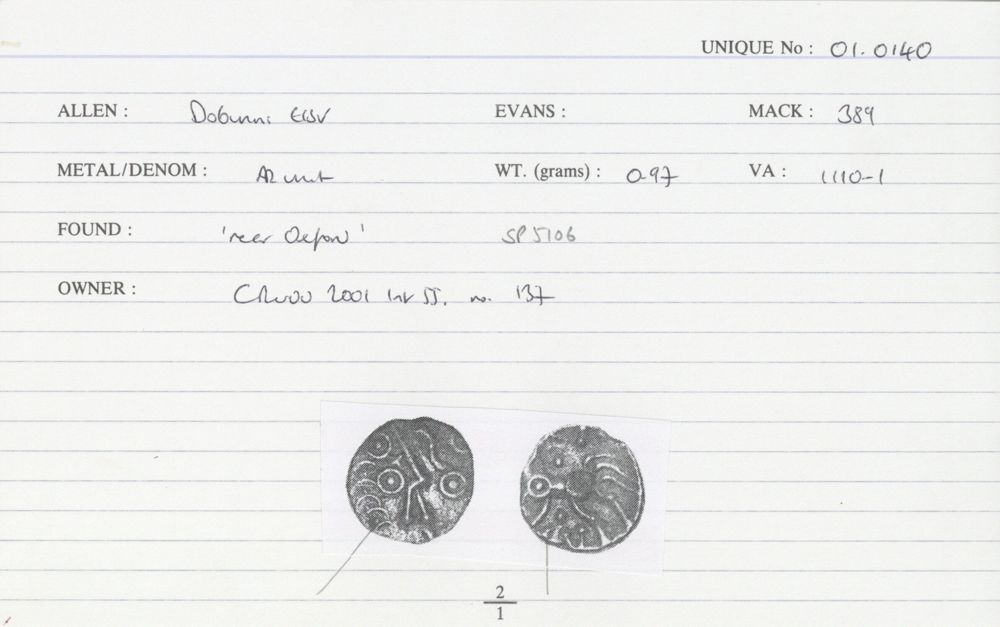 UNIQUE No : 01.0140
ALLEN : Dobunni EWV EVANS : MACK : 389
METAL/DENOM : AR unit WT. (grams) : 0.97 VA : 1110-1
FOUND : 'near Oxford' SP 5106
OWNER : 2001 no. 137
2
1